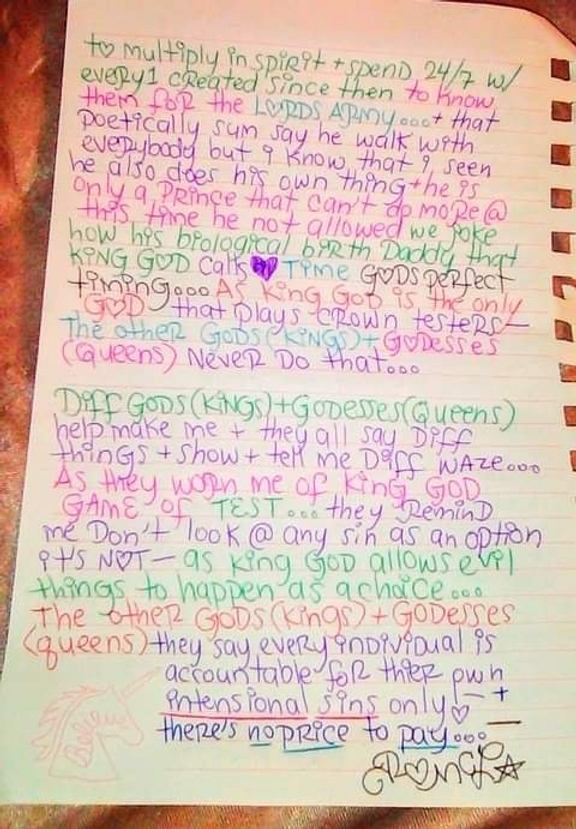 to multiply in spirit + spend 24/7 w/
every1 created since then to know
them for the LORDS ARMY...+ that
poetically sum say he walk with
everybody but i know that i seen
he also does his own thing + he is
only a Prince that can't do more @
this time he not allowed we joke
how his biological birth Daddy that
KING GOD calls 💜 TIME GODS perfect
timing... As King God is the only
GOD that plays crown testers—
The other Gods (Kings) + Godesses
(Queens) Never Do that...
Diff GODS (KINGS) + Godesses (Queens)
help make me + they all say Diff
things + show + tell me Diff WAZE...
As they worn me of King GOD
GAME of TEST... they Remind
me Don't look @ any sin as an option
it's NOT— as King God allows evil
things to happen as a choice...
The other Gods (Kings) + GODESSES
(queens) they say every individual is
accountable for thier pwn
intensional sins only ♡ — +
there's no price to pay...
Believe